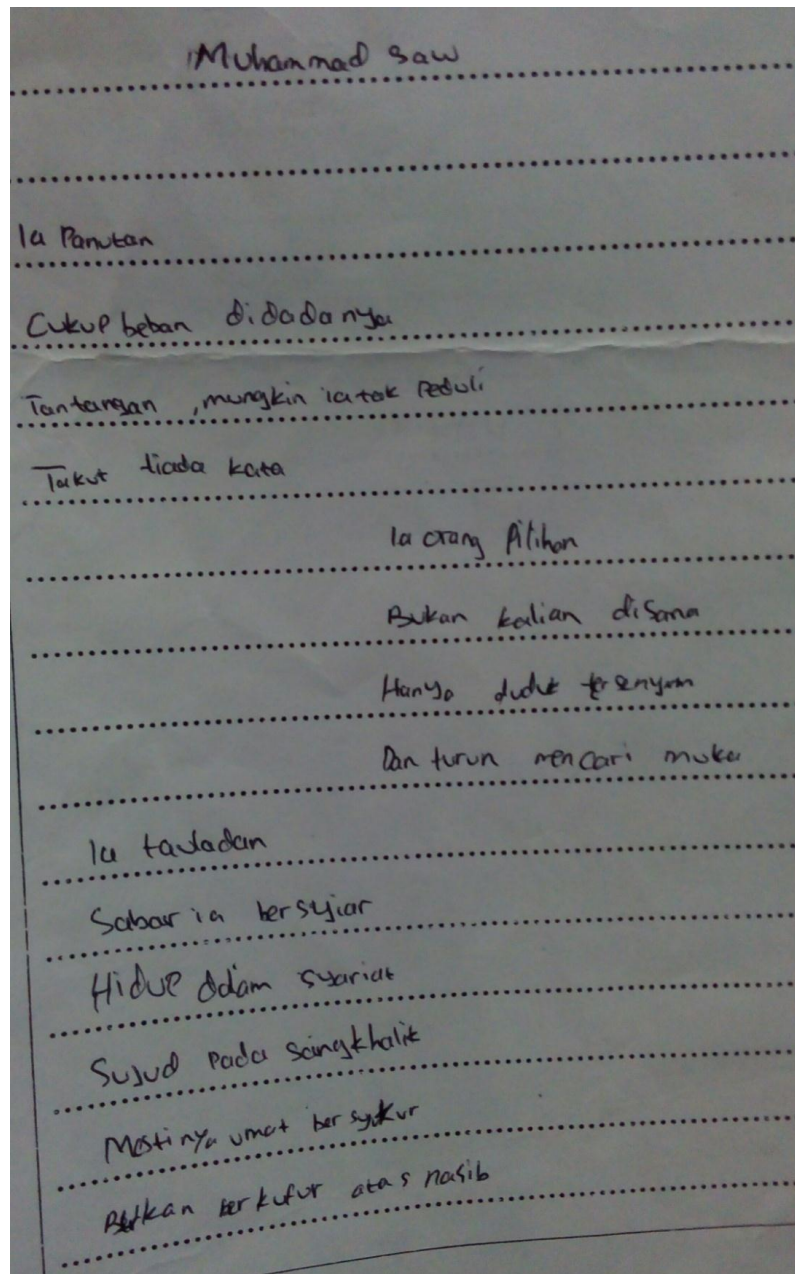 Muhammad saw
Ia Panutan
Cukup beban didadanya
Tantangan , mungkin ia tak peduli
Takut tiada kata
Ia orang Pilihan
Bukan kalian disana
Hanya duduk tersenyum
Dan turun mencari muka
Ia tauladan
Sabar ia bersyiar
Hidup dalam syariat
Sujud pada sangkhalik
Mestinya umat bersyukur
Bukan berkufur atas nasib